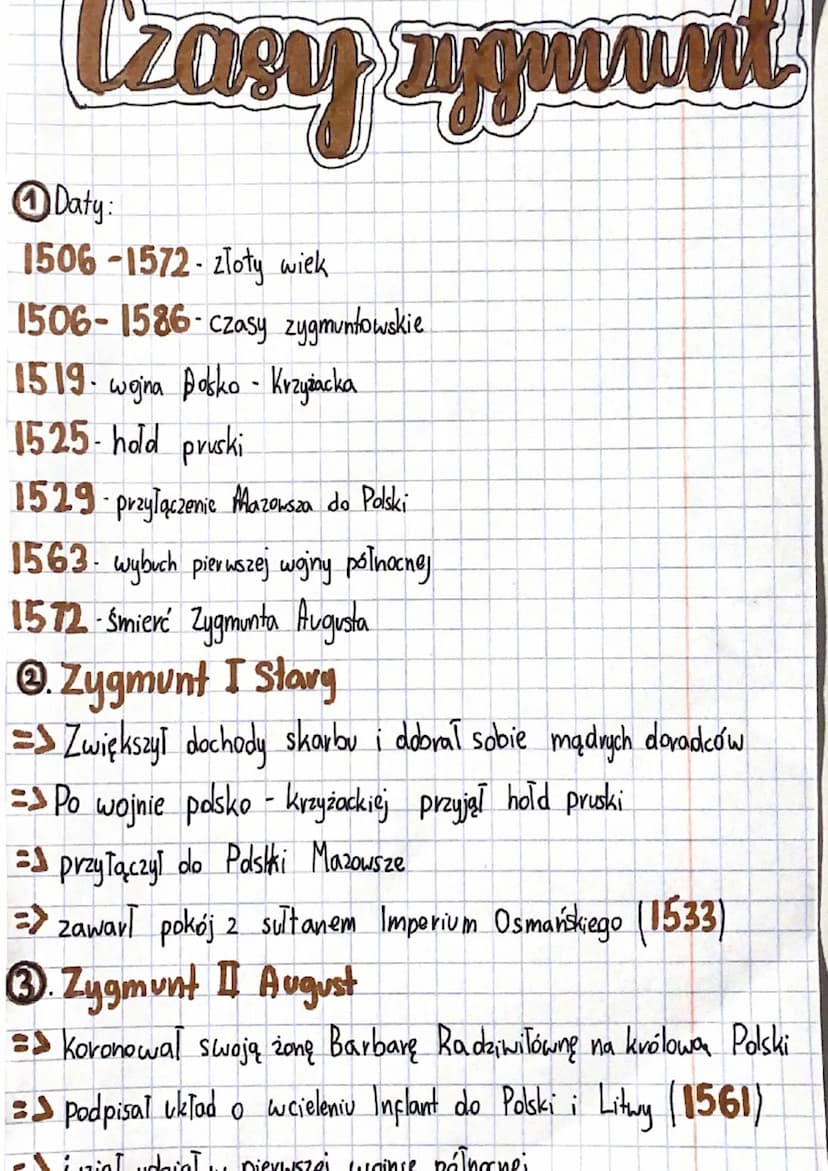 Czasy zygmunt
1 Daty:
1506 - 1572 - złoty wiek
1506 - 1586 - czasy zygmuntowskie
1519 - wojna Polsko - Krzyżacka
1525 - hołd pruski
1529 - przyłączenie Mazowsza do Polski
1563 - wybuch pierwszej wojny północnej
1572 - śmierć Zygmunta Augusta
2. Zygmunt I Stary
=> Zwiększył dochody skarbu i dobrał sobie mądrych doradców
=> Po wojnie polsko - krzyżackiej przyjął hołd pruski
=> przyłączył do Polski Mazowsze
=> zawarł pokój z sułtanem Imperium Osmańskiego (1533)
3. Zygmunt II August
=> Koronował swoją żonę Barbarę Radziwiłównę na królową Polski
=> podpisał układ o wcieleniu Inflant do Polski i Litwy (1561)
=> i wziął udział w pierwszej wojnie północnej